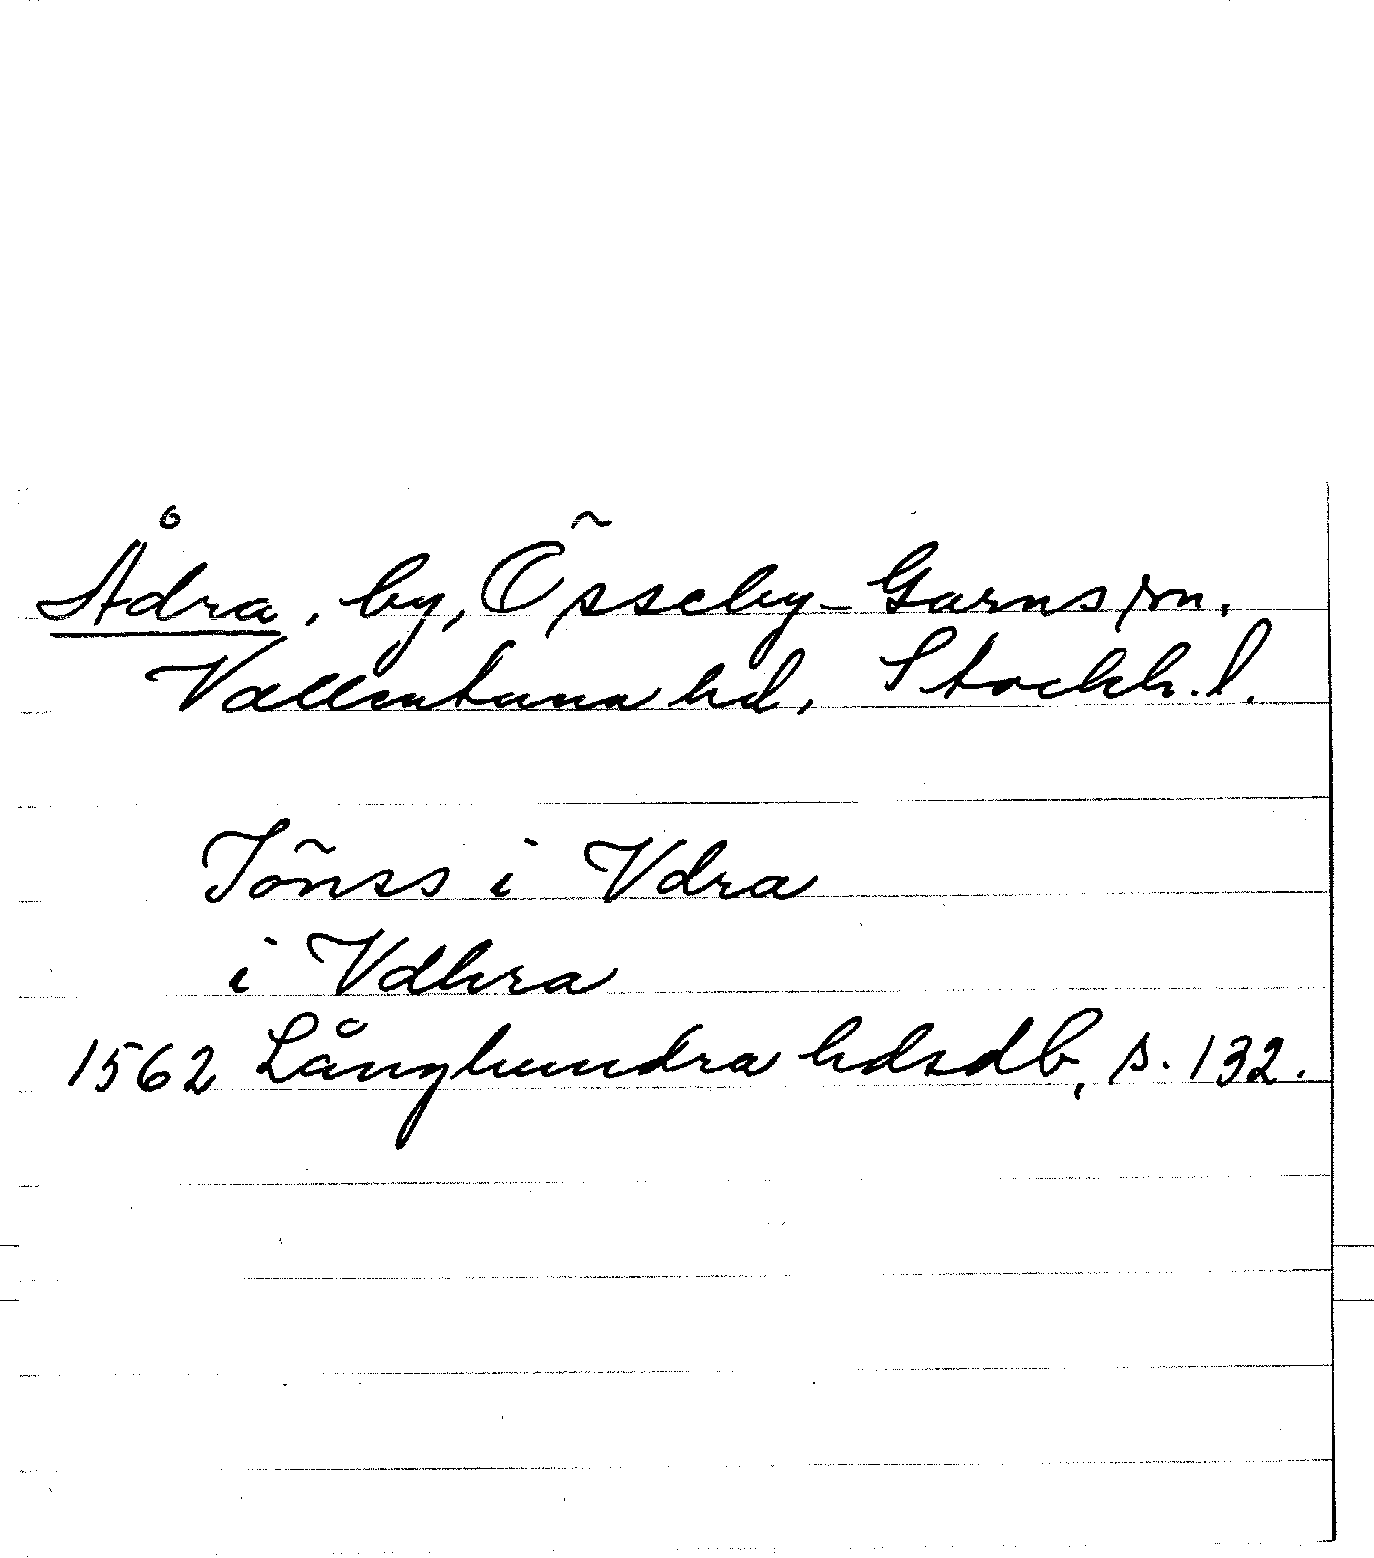 Ådra, by, Össeby-Garns sn.
Vallentuna hd, Stockh. l.
Jönss i Vdra
i Vdhra
1562 Långhundra hdsdb, s. 132.